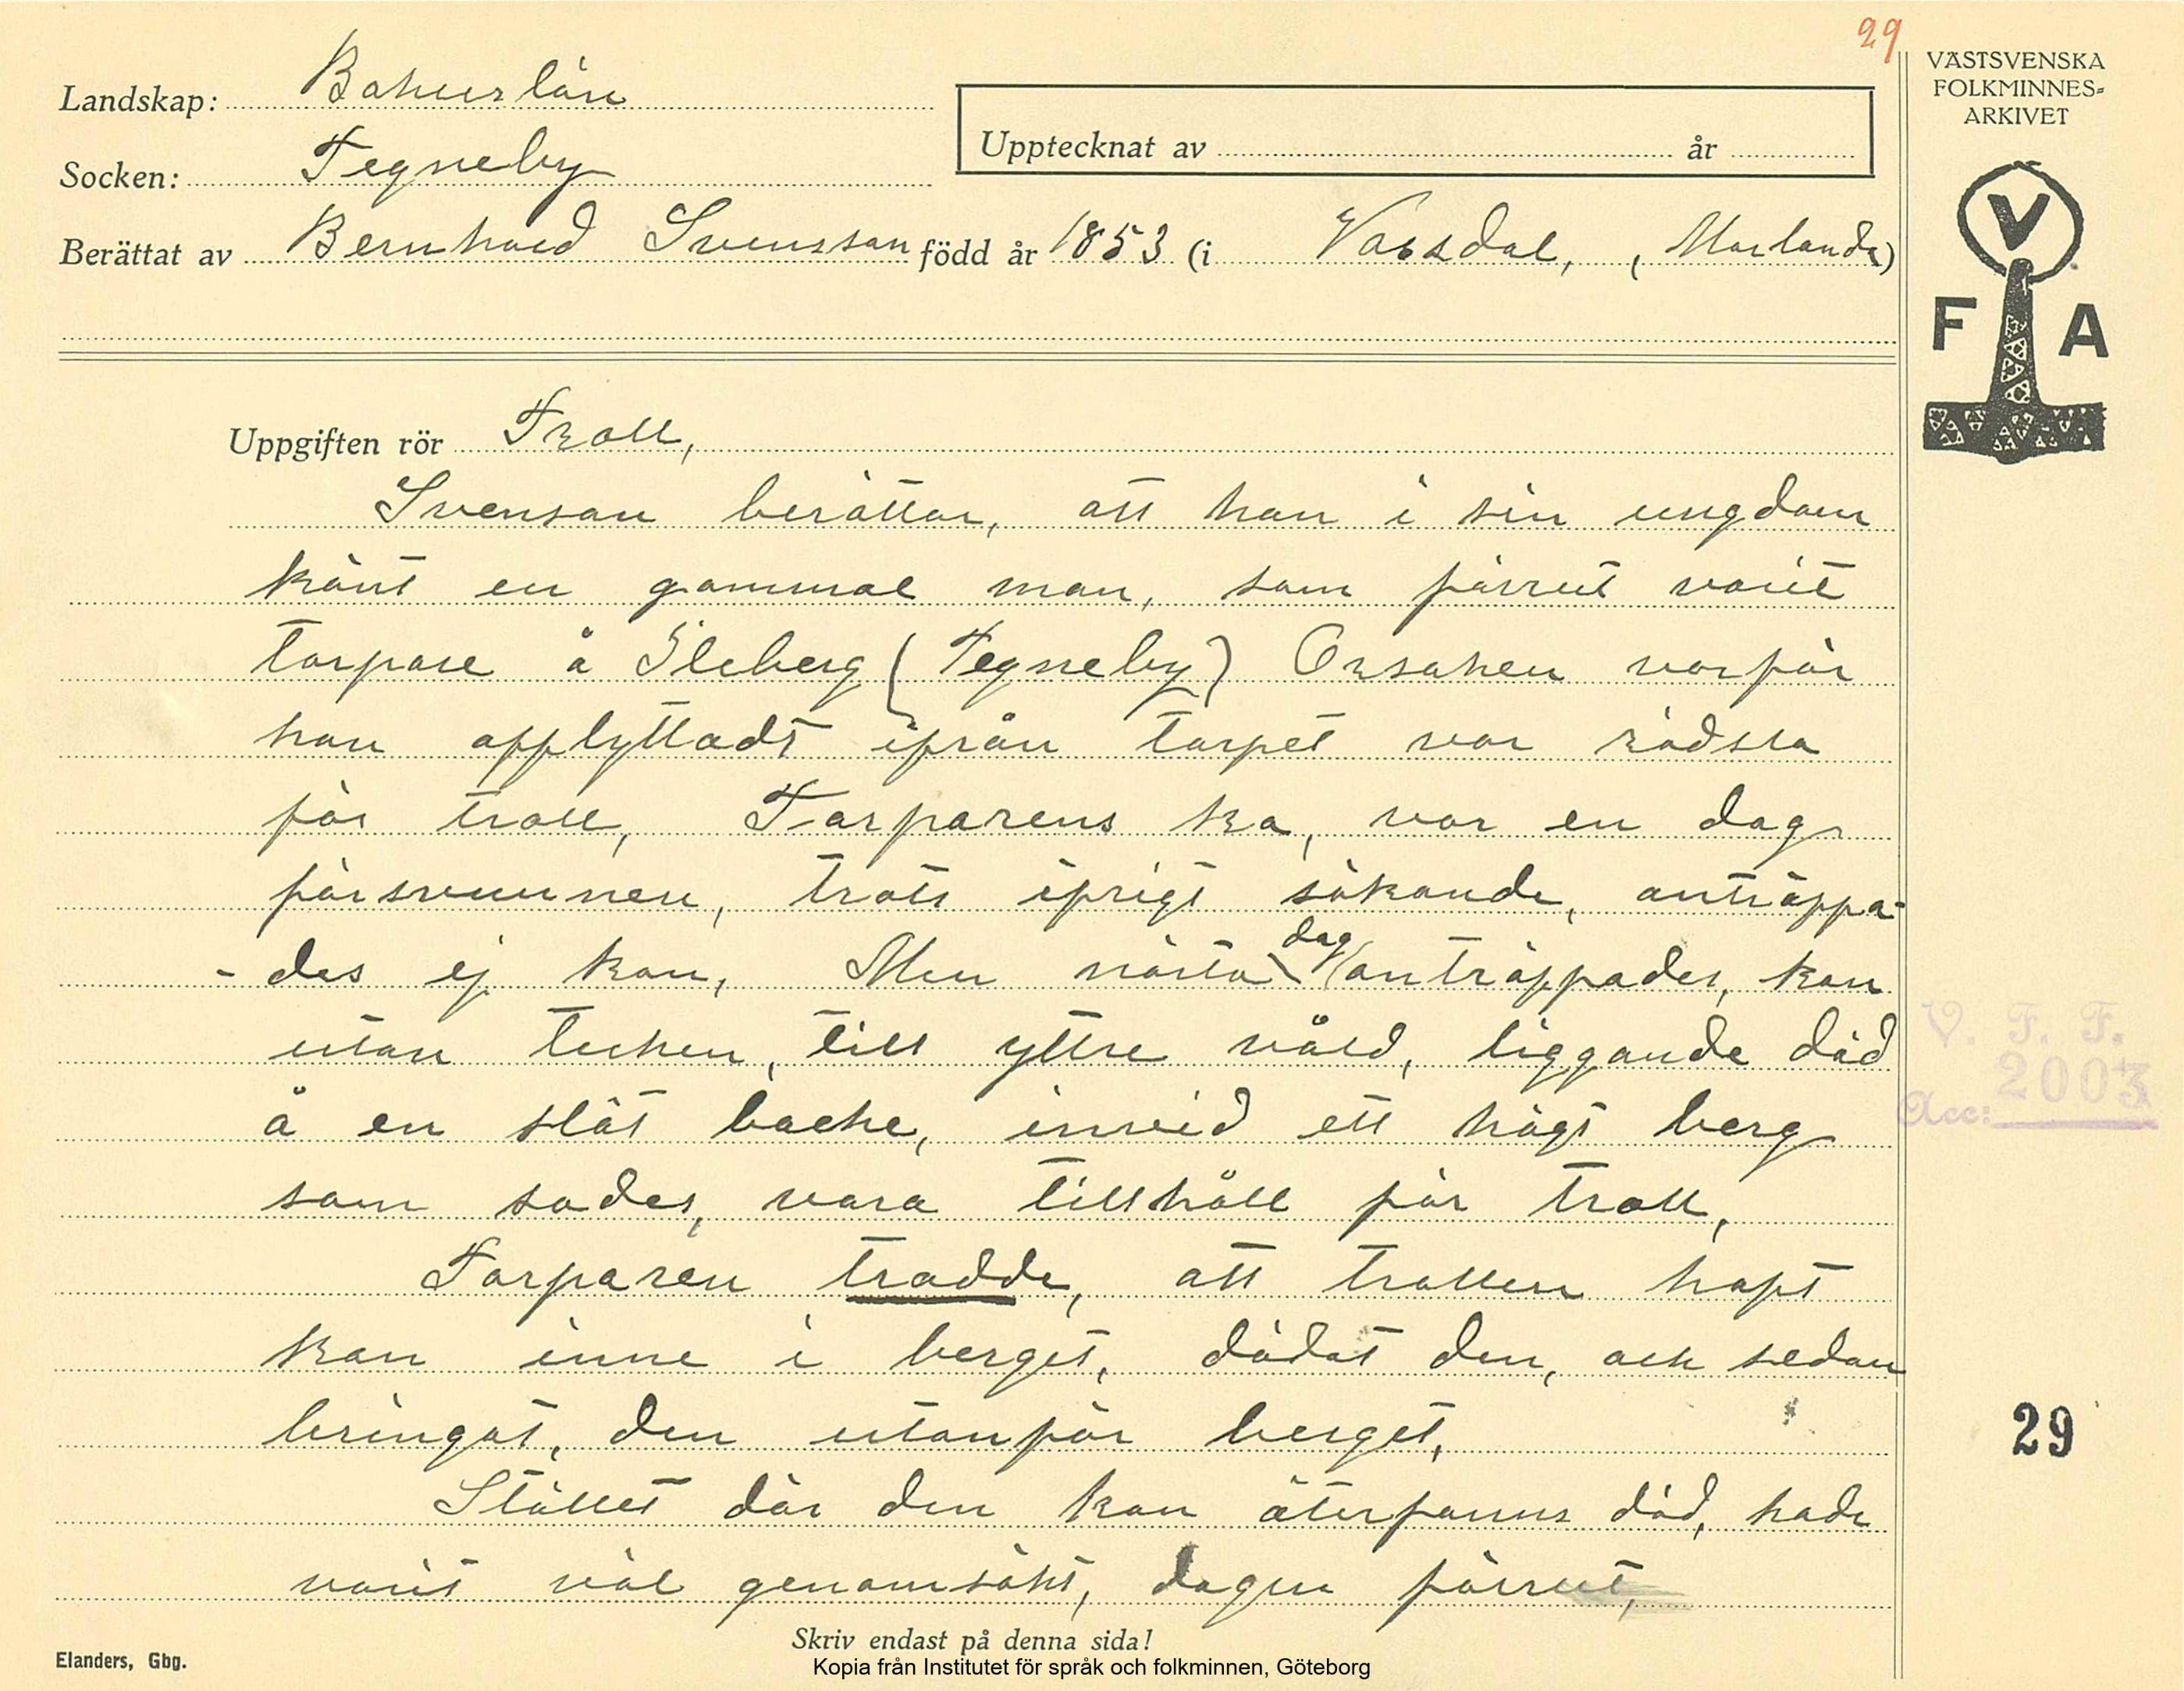 29
VÄSTSVENSKA
FOLKMINNES-
ARKIVET
Landskap: Bohuslän
Upptecknat av år
Socken: Tegneby
Berättat av Bernhard Svensson född år 1853 (i Vassdal, (Morlanda)
V
F A
Uppgiften rör Troll,
Svenson berättar, att han i sin ungdom
känt en gammal man, som förrut varit
torpare å Ileberg (Tegneby) Orsaken varför
han afflyttadt ifrån torpet var rädsla
för troll, Torparens ko, var en dag
försvunnen, trots ifrigt sökande, anträffa-
- des ej kon, Men nästa dag anträffades, kon
utan tecken, till yttre våld, liggande död
å en slät backe, invid ett högt berg
som sades, vara tillhåll för troll,
Torparen trodde, att trollen haft
kon inne i berget, dödat den, och sedan
bringat, den utanför berget,
Stället där den kon återfanns död, hade
varit väl genomsökt, dagen förrut,
V. F. F.
Acc: 2003
29
Skriv endast på denna sida!
Elanders, Gbg.
Kopia från Institutet för språk och folkminnen, Göteborg